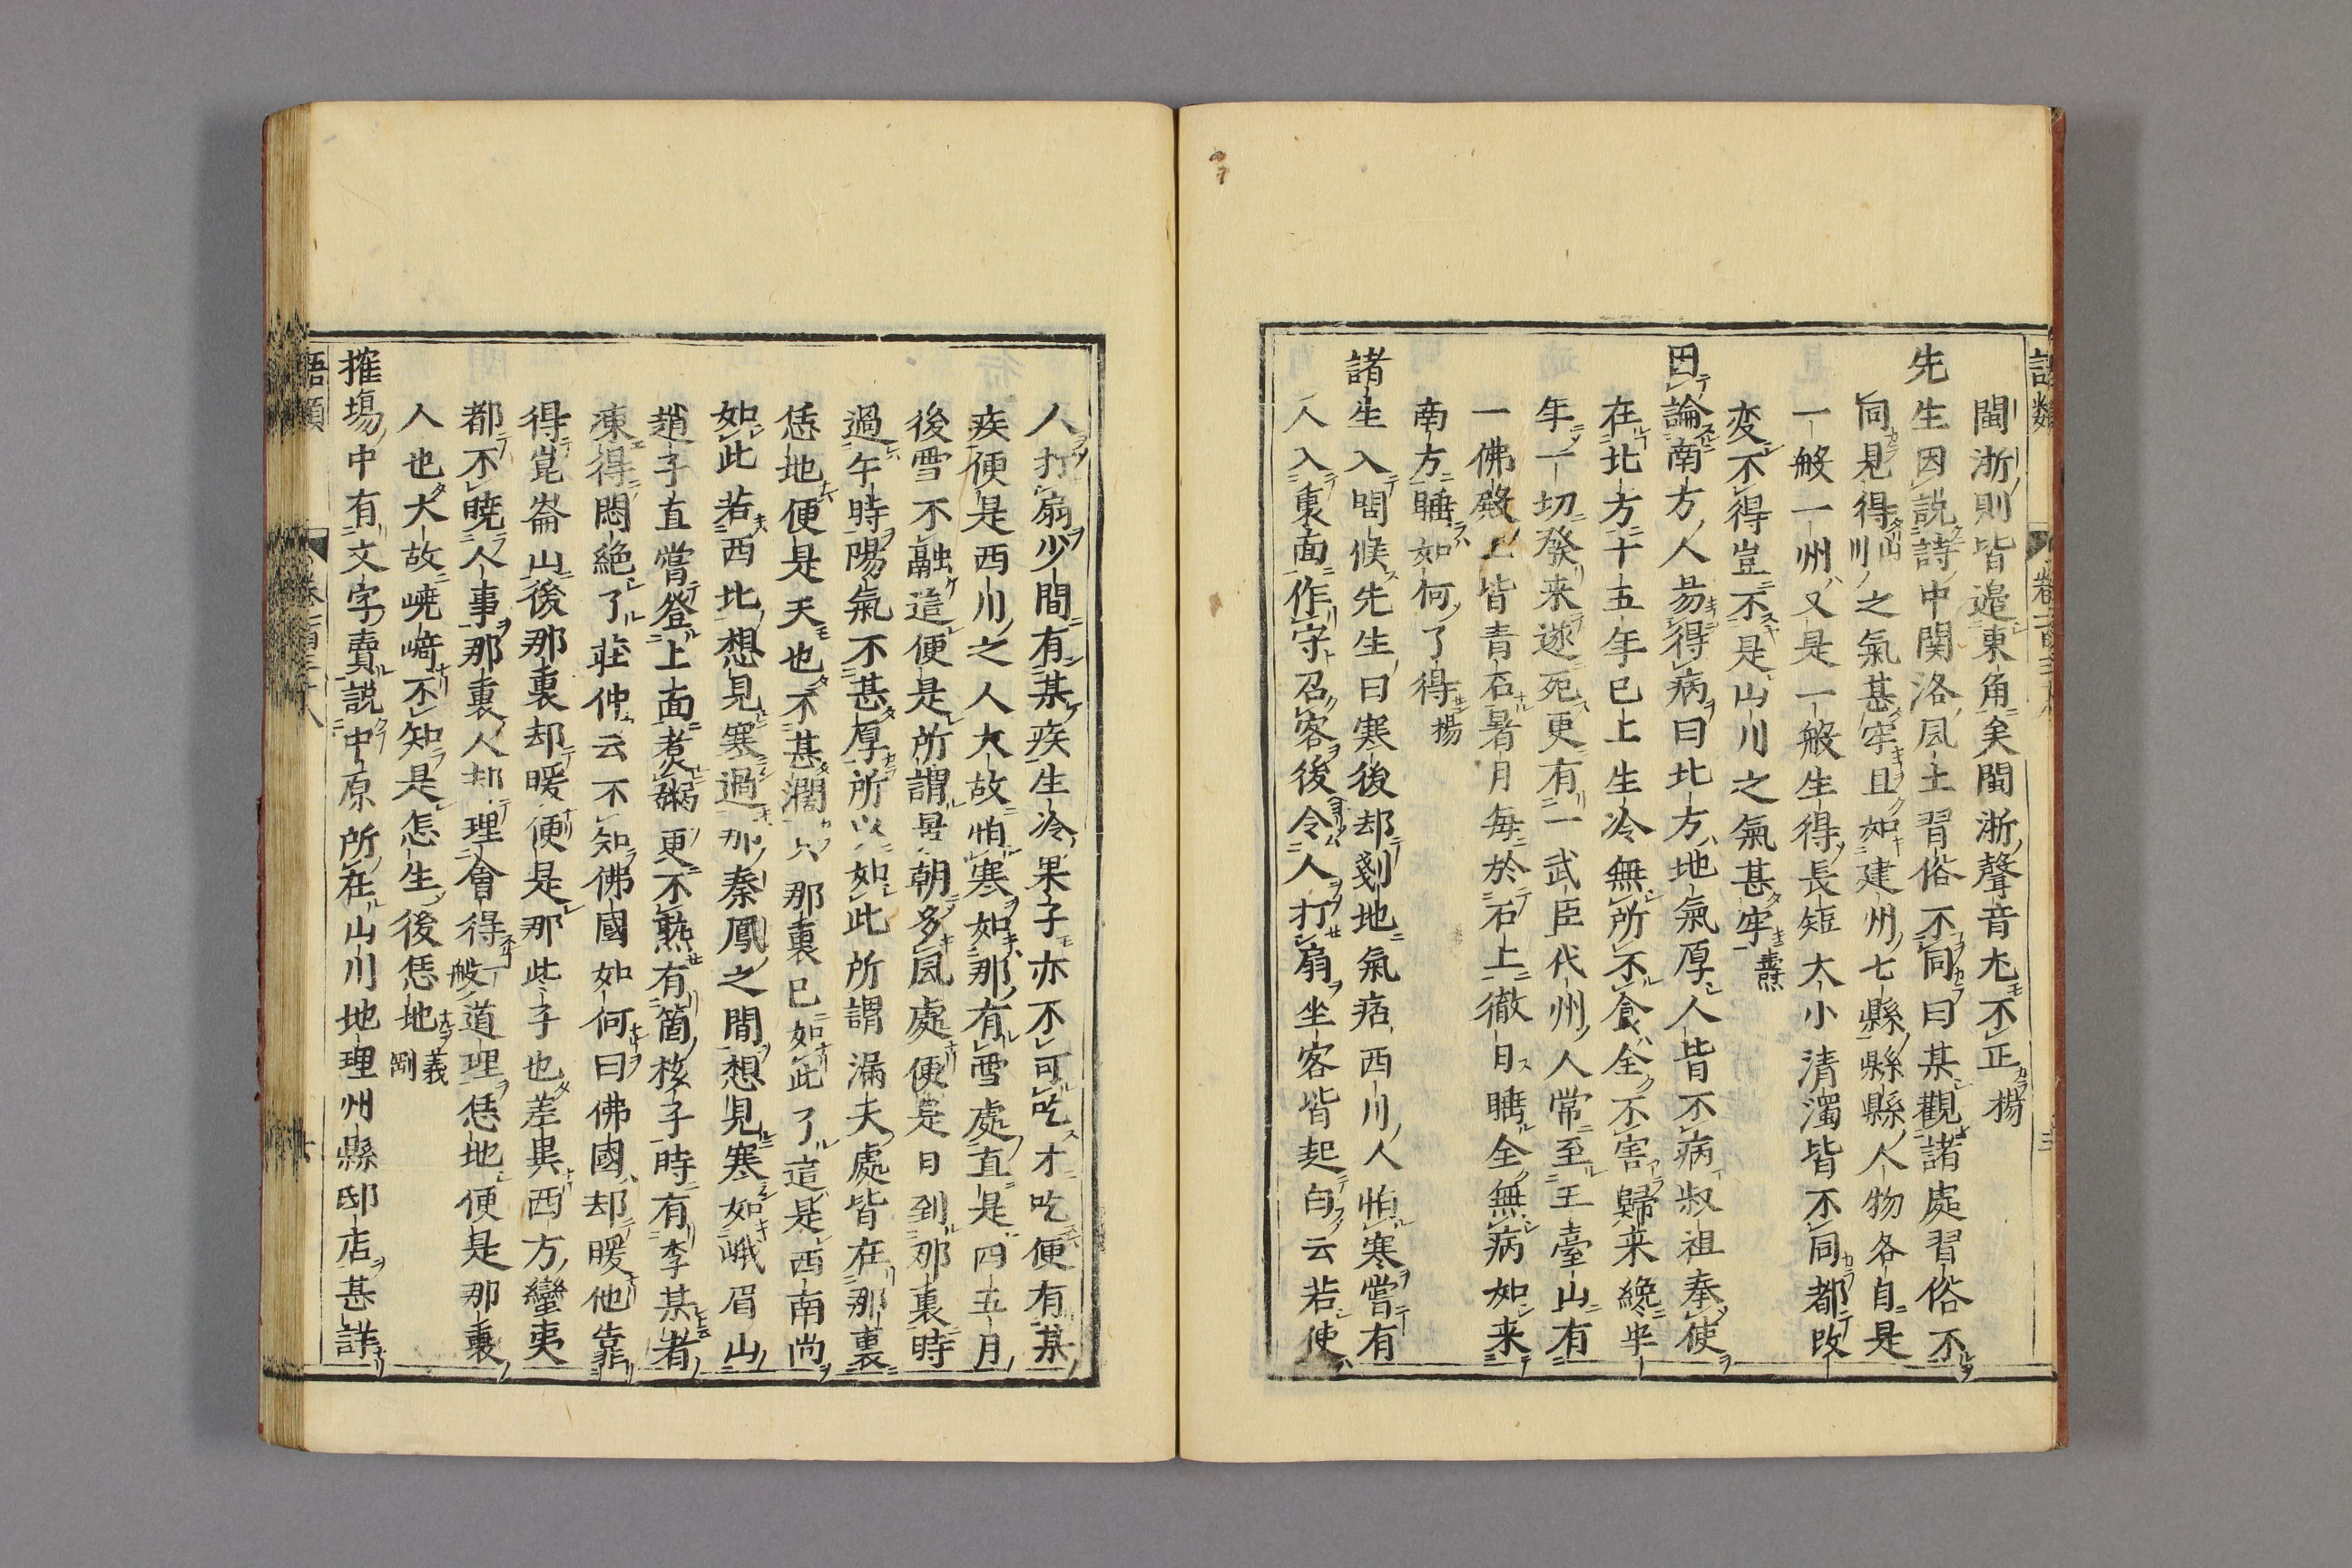 語類
卷一百三十八
閩浙則皆邉東角矣閩浙聲音尤不正揚
先生因説詩中関洛風土習俗不同曰某觀諸處習俗不
同見得山川之氣甚牢且如建州七縣縣縣人物各自是
一般一州又是一般生得長短大小清濁皆不同都改
変不得豈不是山川之氣甚牢燾
因論南方人易得病曰北方地氣厚人皆不病叔祖奉使
在北方十五年已上生冷無所不食全不害歸来纔半
年一切發来遂死更有一武臣代州人常至王臺山有
一佛殿上皆青石暑月毎於石上徹日睡全無病如来
南方睡如何了得揚
諸生入問候先生曰寒後却剗地氣痞西川人怕寒嘗有
人入裏面作守召客後令人打扇坐客皆起白云若使
人打扇少間有某疾生冷果子亦不可吃才吃便有某
疾便是西川之人大故怕寒如那有雪處直是四五月
後雪不融這便是所謂景朝多風處便是日到那裏時
過午時陽氣不甚厚所以如此所謂漏天處皆在那裏
恁地便是天也不甚濶只那裏已如此了這是西南尚
如此若西北想見寒過那秦鳳之間想見寒如峨眉山
趙子直嘗登上面煮粥更不熟有箇核子時有李某者
凍得悶絶了莊仲云不知佛國如何曰佛國却暖他靠
得崑崙山後那裏却暖便是那些子也差異西方蠻夷
都不曉人事那裏人却理會得一般道理恁地便是那裏
人也大故嶢﨑不知是怎生後恁地義剛
搉塲中有文字賣説中原所在山川地理州縣邸店甚詳
語類
卷一百三十八